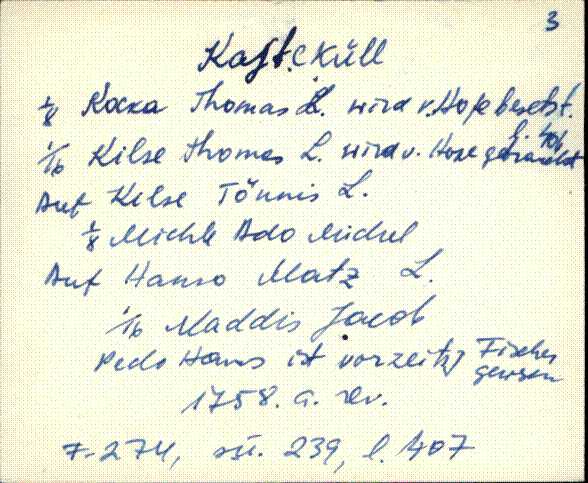 3
Kasteküll
1/8 Kocka Thomas L. wird v. Hofe besetzt.
l. 404
1/16 Kilse Thomas L. wird v. Hofe gebraucht
Auf Kelse Tönnis L.
1/8 Michle Ado Michel
Auf Hanso Matz L.
1/16 Maddis Jacob
Pedo Hans ist vorzeitz Fischer
gewesen
1758. a. rev.
F. 274, sü. 239, l. 407